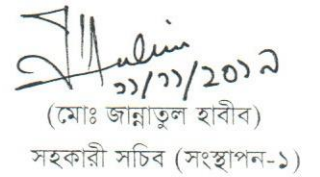 ১১/১১/২০১৯
(মোঃ জান্নাতুল হাবীব)
সহকারী সচিব (সংস্থাপন-১)